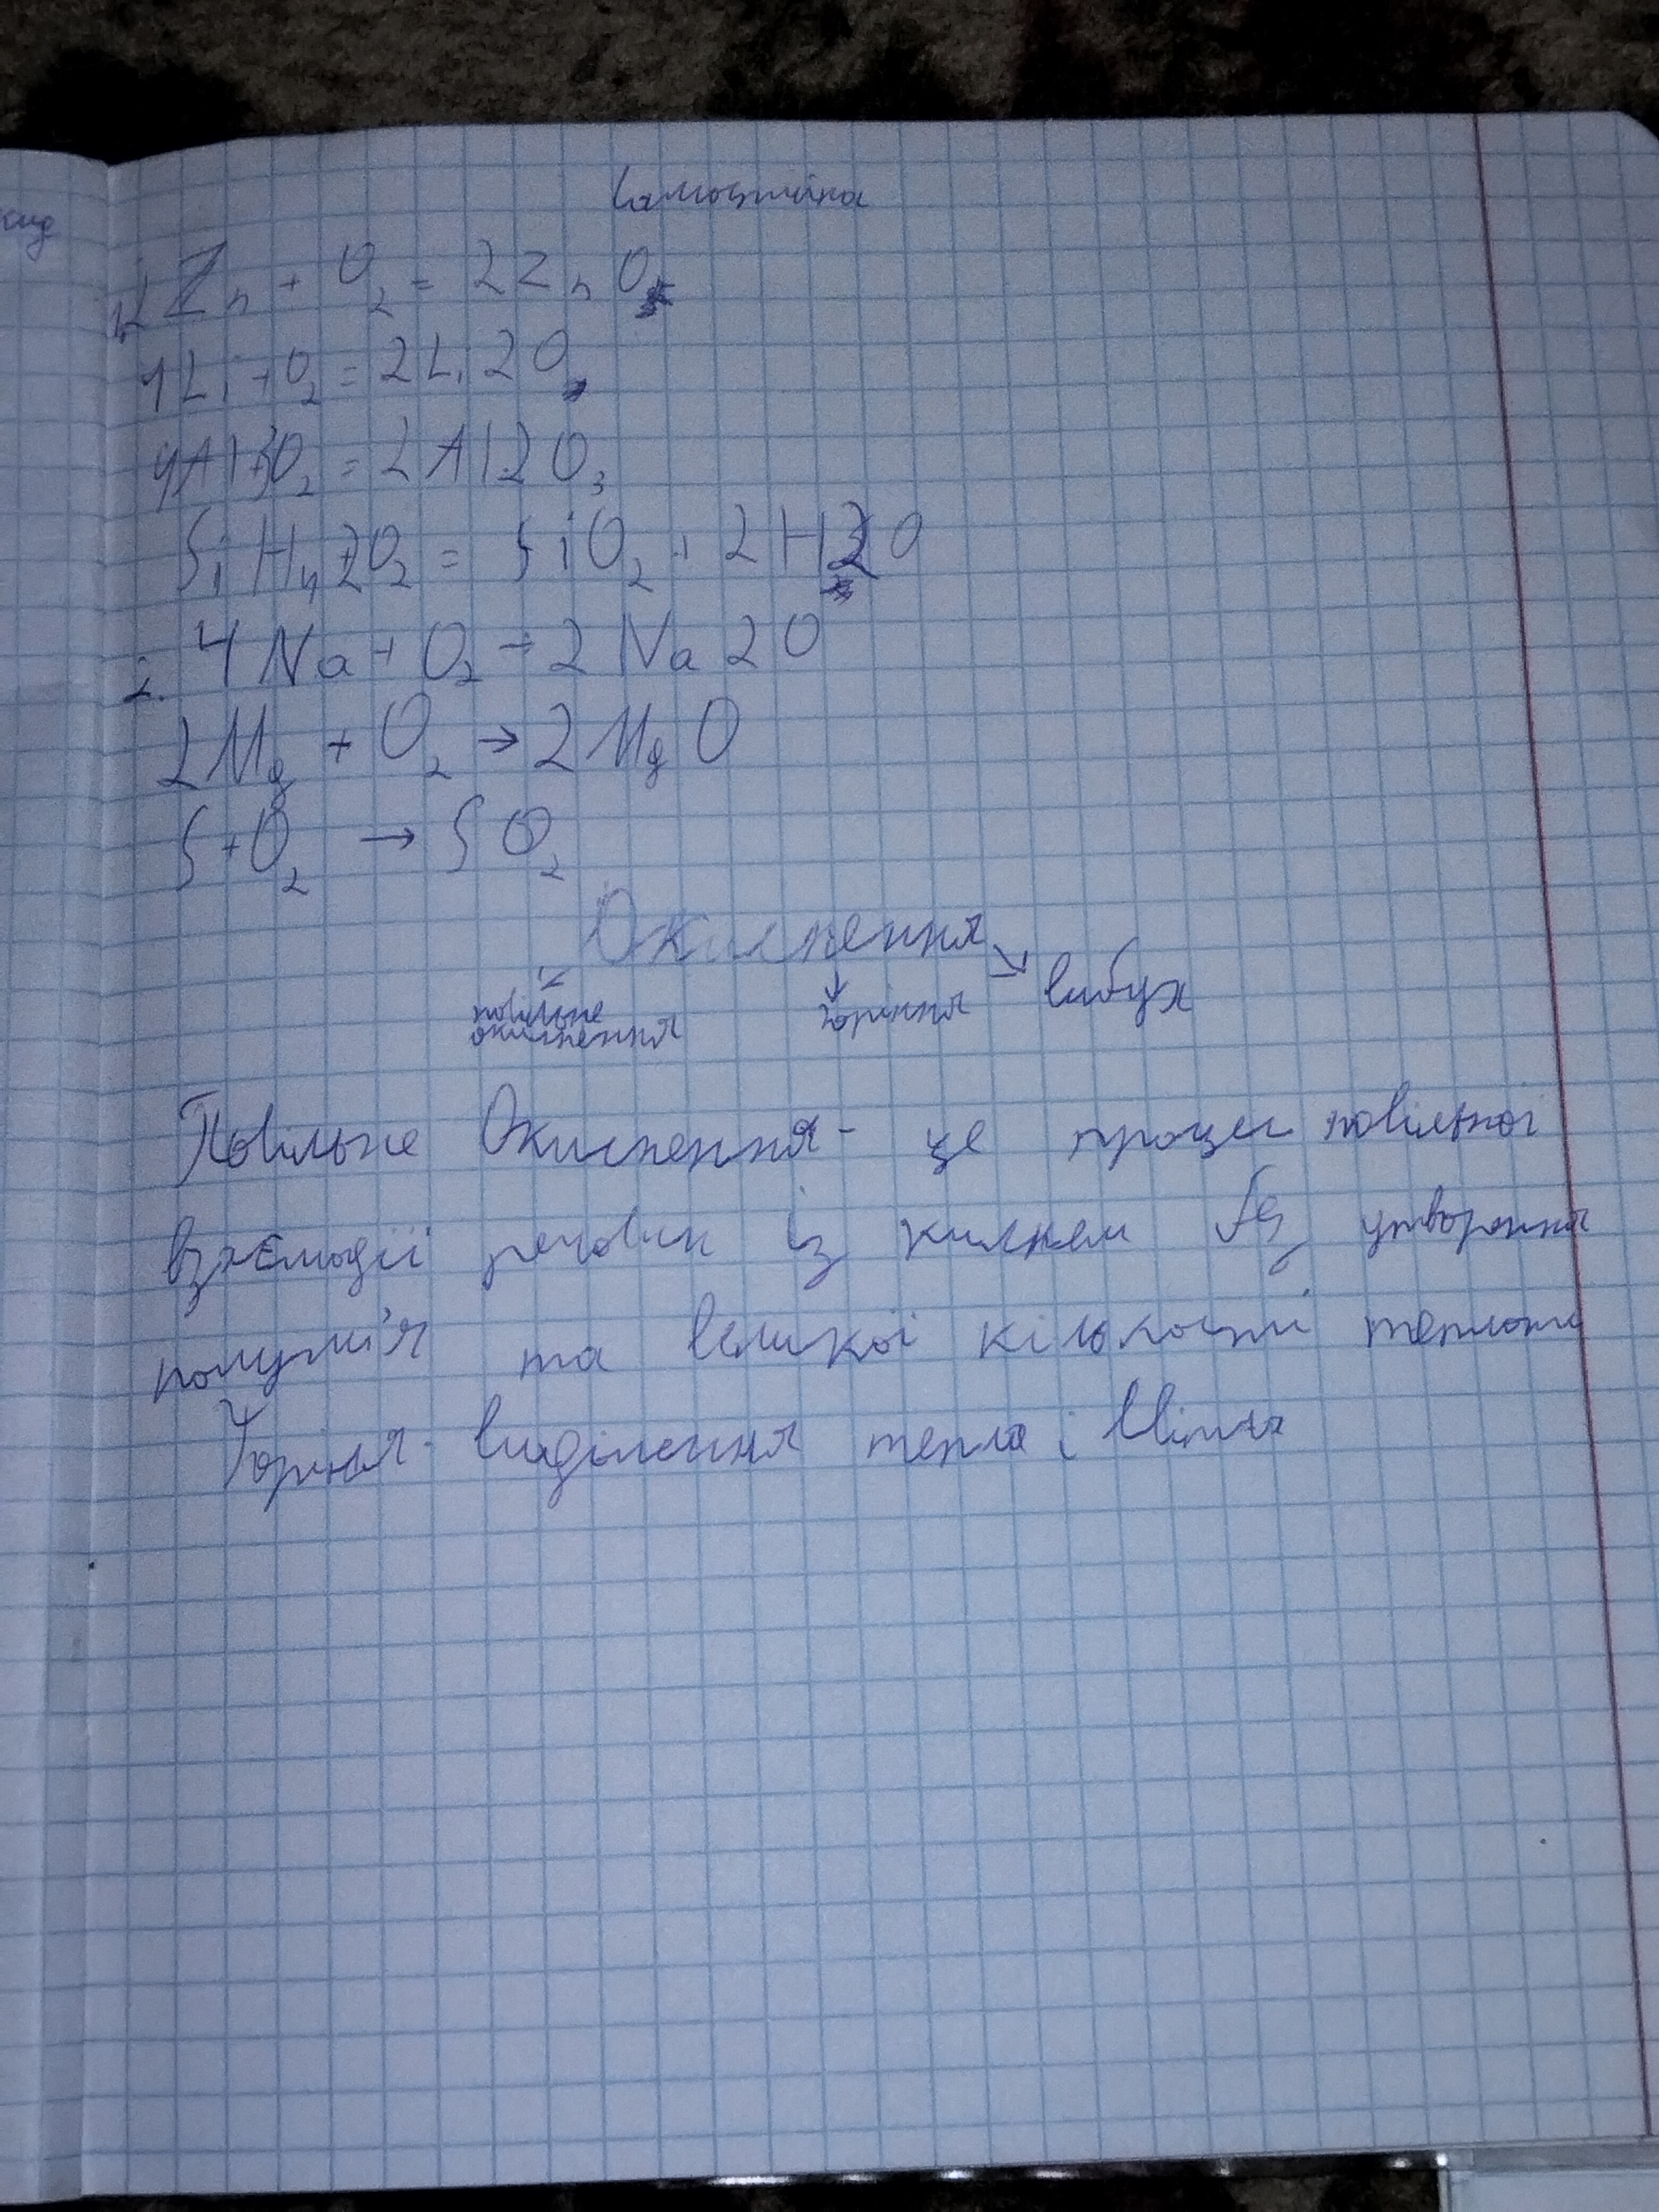 кид
Самостійна
1. 2Zn + O₂ = 2ZnO
4Li + O₂ = 2Li2O
4Al+3O₂ = 2Al2O₃
SiH₄+2O₂ = SiO₂ + 2H2O
2. 4Na + O₂ → 2Na2O
2Mg + O₂ → 2MgO
S+O₂ → SO₂
Окиснення
повільне горіння вибух
окиснення
Повільне Окиснення - це процес повільної
взаємодії речовин із киснем без утворення
полум'я та великої кількості теплоти
Горіння - виділення тепла і